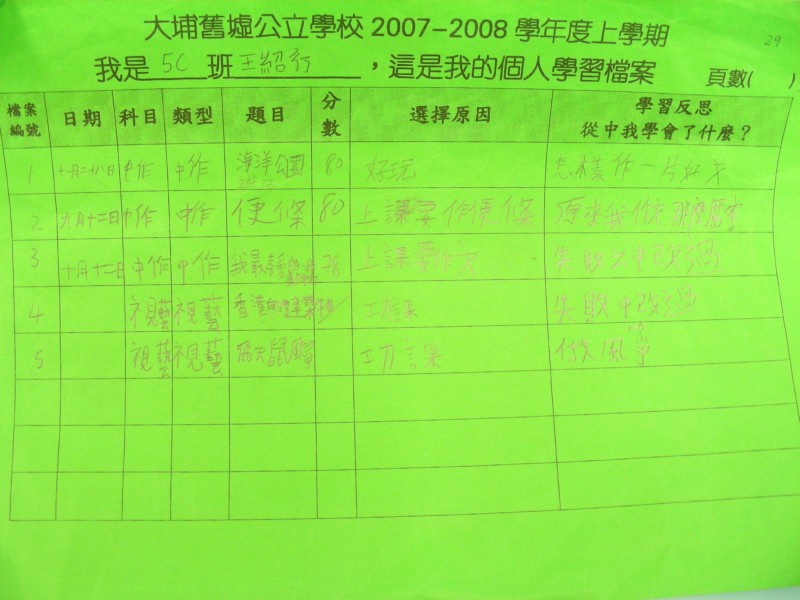 大埔舊墟公立學校 2007-2008 學年度上學期
29
我是 5C 班 王紹行 ，這是我的個人學習檔案 頁數( )
檔案編號 日期 科目 類型 題目 分數 選擇原因 學習反思 從中我學會了什麼？
1 十一月二十八日 中作 中作 海洋公園 80 好玩 怎樣作一片好文
2 九月十三日 中作 中作 便條 80 上課要作便條 原來我作
3 十月十二日 中作 中作 我最 78 上課要 失敗之中改過
4 視藝 視藝 香港 建築 功課 失敗中改過
5 視藝 視藝 飛天鼠 功課 做風箏